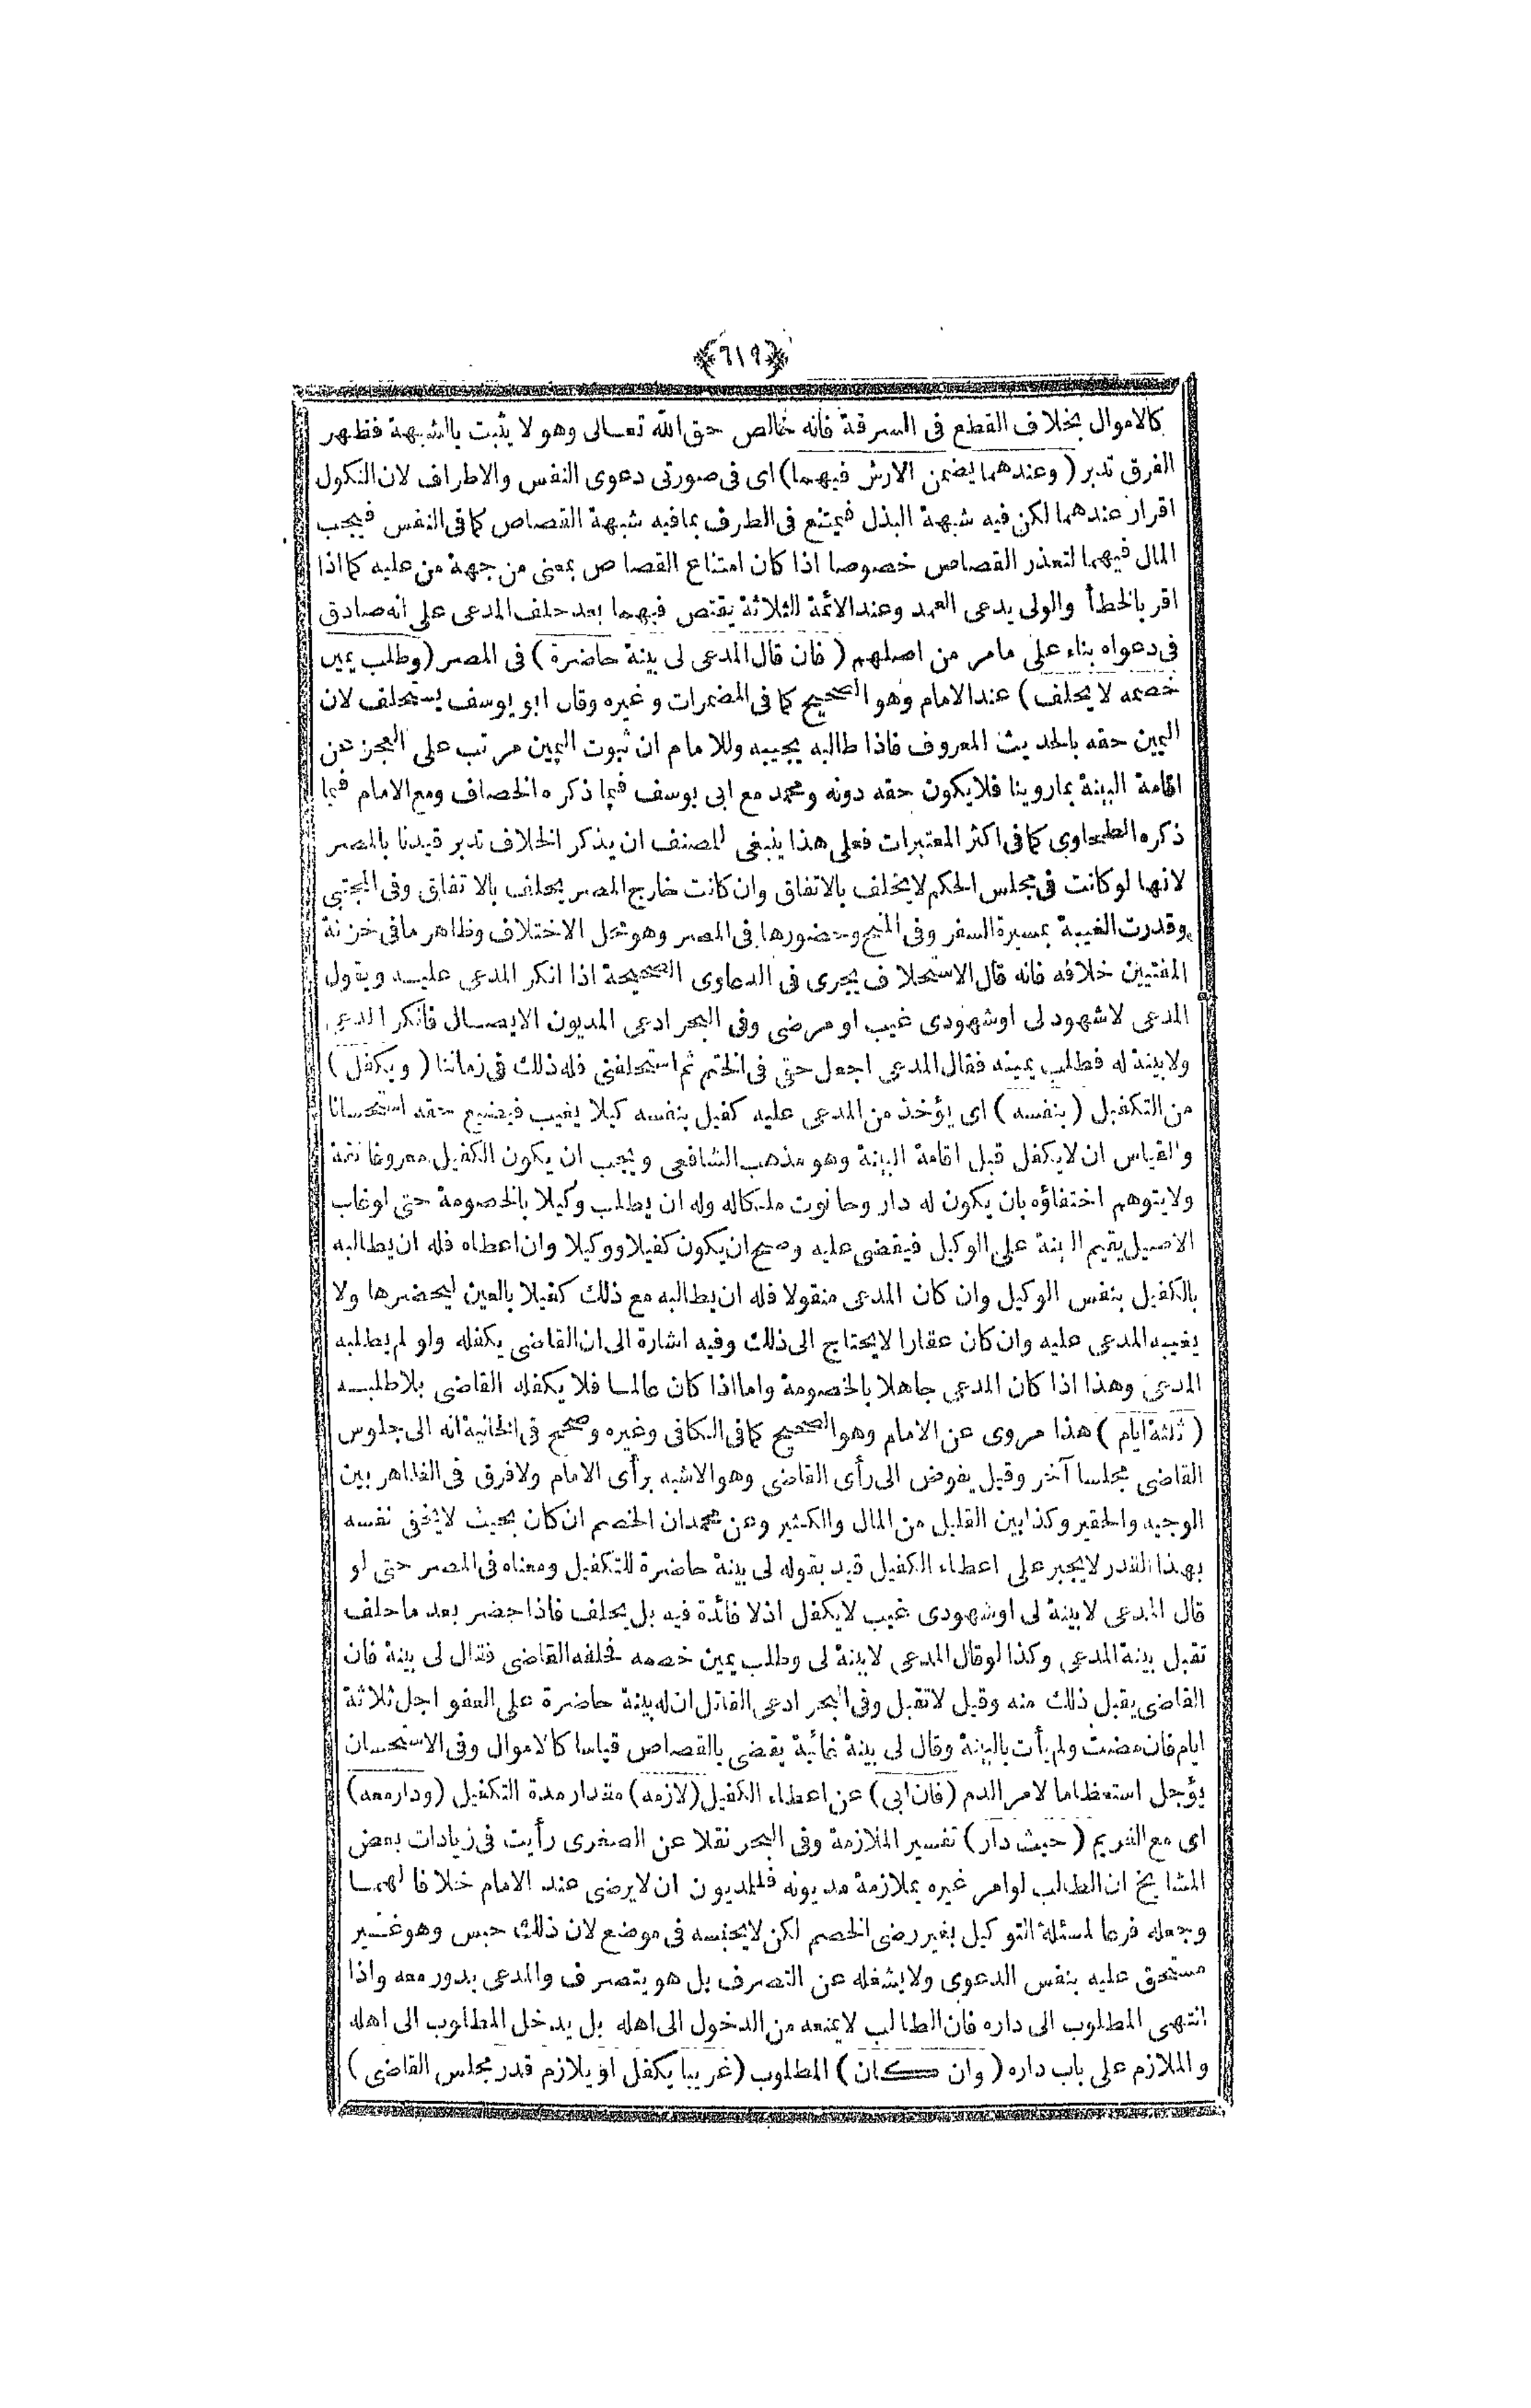 ﴿٦١٩﴾
كالاموال بخلاف القطع فى السرقة فانه خالص حق الله تعالى وهو لا يثبت بالشبهة فظهر
الفرق تدبر ( وعندهما يضمن الارش فيهما) اى فى صورتى دعوى النفس والاطراف لان النكول
اقرار عندهما لكن فيه شبهة البذل فيمتنع فى الطرف بمافيه شبهة القصاص كما فى النفس فيجب
المال فيهما لتعذر القصاص خصوصا اذا كان امتناع القصاص بمعنى من جهة من عليه كما اذا
اقر بالخطأ والولى يدعى العمد وعند الائمة الثلاثة يقتص فيهما بعد حلف المدعى على انه صادق
فى دعواه بناء على مامر من اصلهم ( فان قال المدعى لى بينة حاضرة ) فى المصر (وطلب يمين
خصمه لا يحلف ) عند الامام وهو الصحيح كما فى المضمرات وغيره وقال ابو يوسف يستحلف لان
اليمين حقه بالحديث المعروف فاذا طالبه يجيبه وللامام ان ثبوت اليمين مرتب على العجز عن
اقامة البينة بماروينا فلايكون حقه دونه ومحمد مع ابى يوسف فيما ذكره الخصاف ومع الامام فيما
ذكره الطحاوى كما فى اكثر المعتبرات فعلى هذا ينبغى للمصنف ان يذكر الخلاف تدبر قيدنا بالمصر
لانها لو كانت فى مجلس الحكم لايحلف بالاتفاق وان كانت خارج المصر يحلف بالاتفاق وفى المجتبى
وقدرت الغيبة بمسيرة السفر وفى المنح وحضورها فى المصر وهو محل الاختلاف وظاهر مافى خزنة
المفتيين خلافه فانه قال الاستحلاف يجرى فى الدعاوى الصحيحة اذا انكر المدعى عليه ويقول
المدعى لاشهود لى اوشهودى غيب او مرضى وفى البحر ادعى المديون الايصال فانكر المدعى
ولابينة له فطلب يمينه فقال المدعى اجعل حقى فى الختم ثم استحلفنى فله ذلك فى زماننا ( ويكفل )
من التكفيل ( بنفسه ) اى يؤخذ من المدعى عليه كفيل بنفسه كيلا يغيب فيضيع حقه استحسانا
والقياس ان لايكفل قبل اقامة البينة وهو مذهب الشافعى ويجب ان يكون الكفيل معروفا ثقة
ولايتوهم اختفاؤه بان يكون له دار وحانوت ملكاله وله ان يطلب وكيلا بالخصومة حتى لوغاب
الاصيل يقيم البينة على الوكيل فيقضى عليه وصح ان يكون كفيلا ووكيلا وان اعطاه فله ان يطالبه
بالكفيل بنفس الوكيل وان كان المدعى منقولا فله ان يطالبه مع ذلك كفيلا بالعين ليحضرها ولا
يغيبه المدعى عليه وان كان عقارا لايحتاج الى ذلك وفيه اشارة الى ان القاضى يكفله ولو لم يطلبه
المدعى وهذا اذا كان المدعى جاهلا بالخصومة واما اذا كان عالما فلا يكفله القاضى بلاطلبه
( ثلثة ايام ) هذا مروى عن الامام وهو الصحيح كما فى الكافى وغيره وصحح فى الخانية انه الى جلوس
القاضى مجلسا آخر وقيل يفوض الى رأى القاضى وهو الاشبه برأى الامام ولافرق فى الظاهر بين
الوجيه والحقير وكذا بين القليل من المال والكثير وعن محمد ان الخصم ان كان بحيث لايخفى نفسه
بهذا القدر لايجبر على اعطاء الكفيل قيد بقوله لى بينة حاضرة للتكفيل ومعناه فى المصر حتى لو
قال المدعى لابينة لى اوشهودى غيب لايكفل اذلا فائدة فيه بل يحلف فاذا حضر بعد ماحلف
تقبل بينة المدعى وكذا لوقال المدعى لابينة لى وطلب يمين خصمه فحلفه القاضى فقال لى بينة فان
القاضى يقبل ذلك منه وقيل لاتقبل وفى البحر ادعى القاتل ان له بينة حاضرة على العفو اجل ثلاثة
ايام فان مضت ولم يأت بالبينة وقال لى بينة غائبة يقضى بالقصاص قياسا كالاموال وفى الاستحسان
يؤجل استعظاما لامر الدم (فان ابى) عن اعطاء الكفيل (لازمه) مقدار مدة التكفيل (ودار معه)
اى مع الغريم ( حيث دار ) تفسير الملازمة وفى البحر نقلا عن الصغرى رأيت فى زيادات بعض
المشايخ ان الطالب لوامر غيره بملازمة مديونه فللمديون ان لايرضى عند الامام خلافا لهما
وجعله فرعا لمسئلة التوكيل بغير رضى الخصم لكن لايحبسه فى موضع لان ذلك حبس وهو غير
مستحق عليه بنفس الدعوى ولايشغله عن التصرف بل هو يتصرف والمدعى يدور معه واذا
انتهى المطلوب الى داره فان الطالب لايمنعه من الدخول الى اهله بل يدخل المطلوب الى اهله
والملازم على باب داره ( وان كان ) المطلوب (غريبا يكفل او يلازم قدر مجلس القاضى )